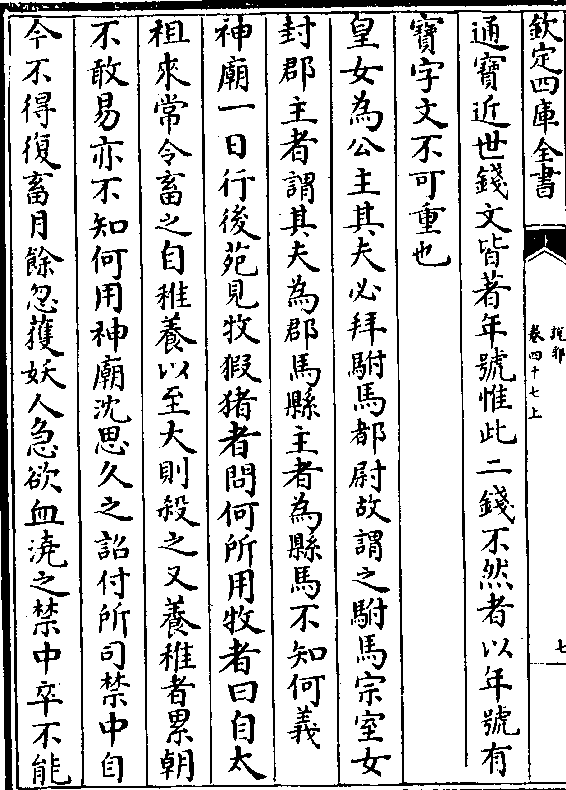 欽定四庫全書
說郛
卷四十七上
七
通寶近世錢文皆著年號惟此二錢不然者以年號有
寶字文不可重也
皇女為公主其夫必拜駙馬都尉故謂之駙馬宗室女
封郡主者謂其夫為郡馬縣主者為縣馬不知何義
神廟一日行後苑見牧猳猪者問何所用牧者曰自太
祖來常令畜之自稚養以至大則殺之又養稚者累朝
不敢易亦不知何用神廟沈思久之詔付所司禁中自
今不得復畜月餘忽獲妖人急欲血澆之禁中卒不能